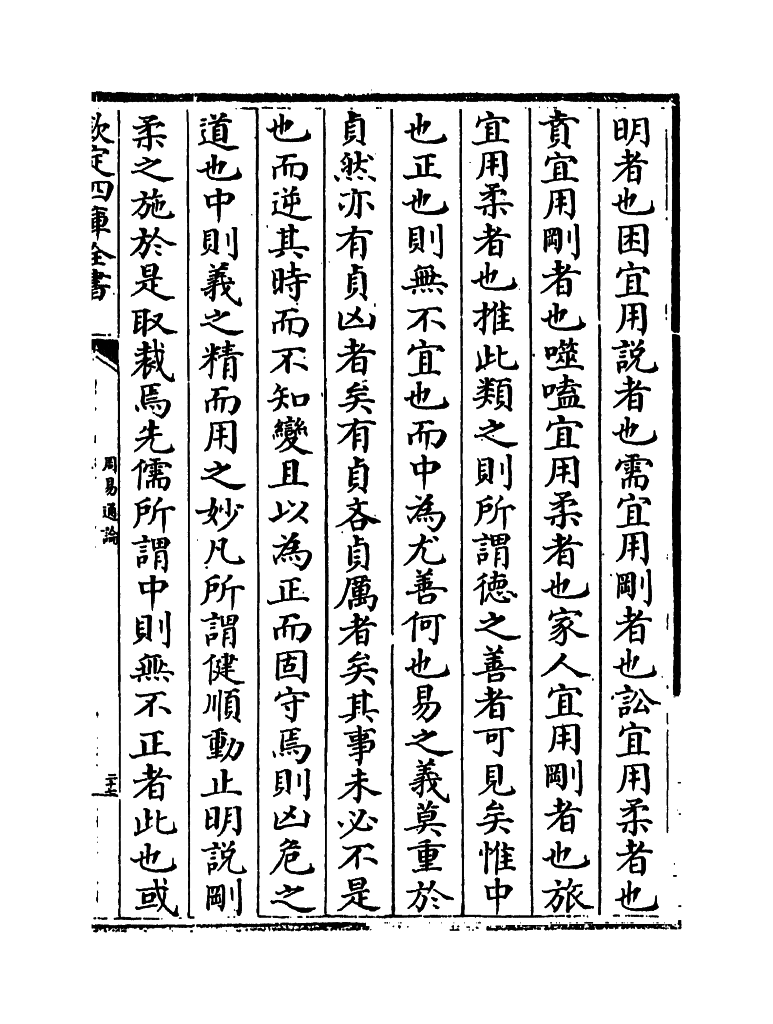 明者也困宜用說者也需宜用剛者也訟宜用柔者也
賁宜用剛者也噬嗑宜用柔者也家人宜用剛者也旅
宜用柔者也推此類之則所謂德之善者可見矣惟中
也正也則無不宜也而中為尤善何也易之義莫重於
貞然亦有貞凶者矣有貞吝貞厲者矣其事未必不是
也而逆其時而不知變且以為正而固守焉則凶危之
道也中則義之精而用之妙凡所謂健順動止明說剛
柔之施於是取裁焉先儒所謂中則無不正者此也或
欽定四庫全書
周易通論